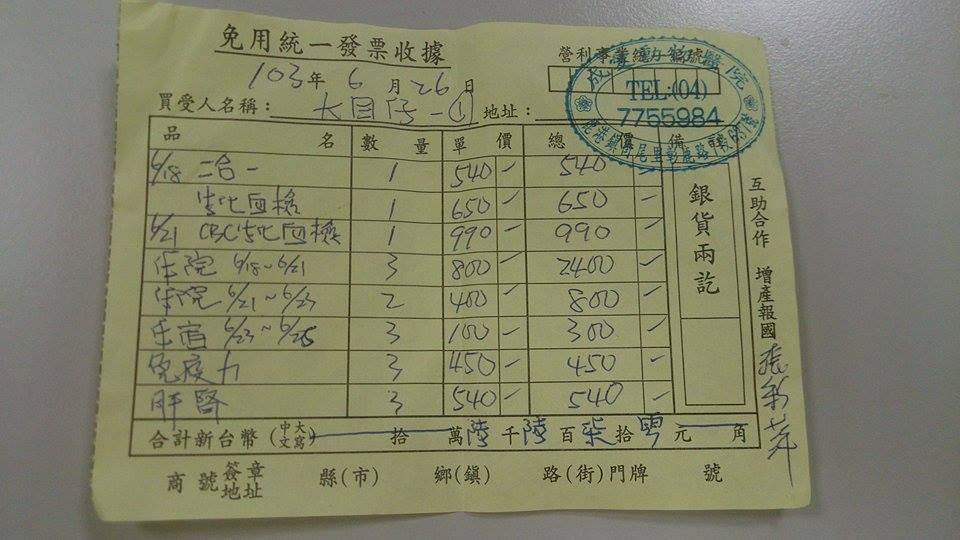 免用統一發票收據
營利事業統一編號
103年 6月 26日
TEL:(04)
7755984
買受人名稱： 大目仔-① 地址：
品名 數量 單價 總價 備
6/18 二合一 1 540 - 540
生化血檢 1 650 - 650 -
6/21 CBC生化血檢 1 990 - 990 -
住院 6/18~6/21 3 800 - 2400 -
住院 6/21~6/23 2 400 - 800 -
住宿 6/23~6/26 3 100 - 300 -
免疫力 3 450 - 450 -
肝腎 3 540 - 540 -
銀貨兩訖
互助合作 增產報國
合計新台幣(中文大寫) 拾 萬 陸 千 陸 百 柒 拾 零 元 角
商號簽章地址 縣(市) 鄉(鎮) 路(街)門牌 號